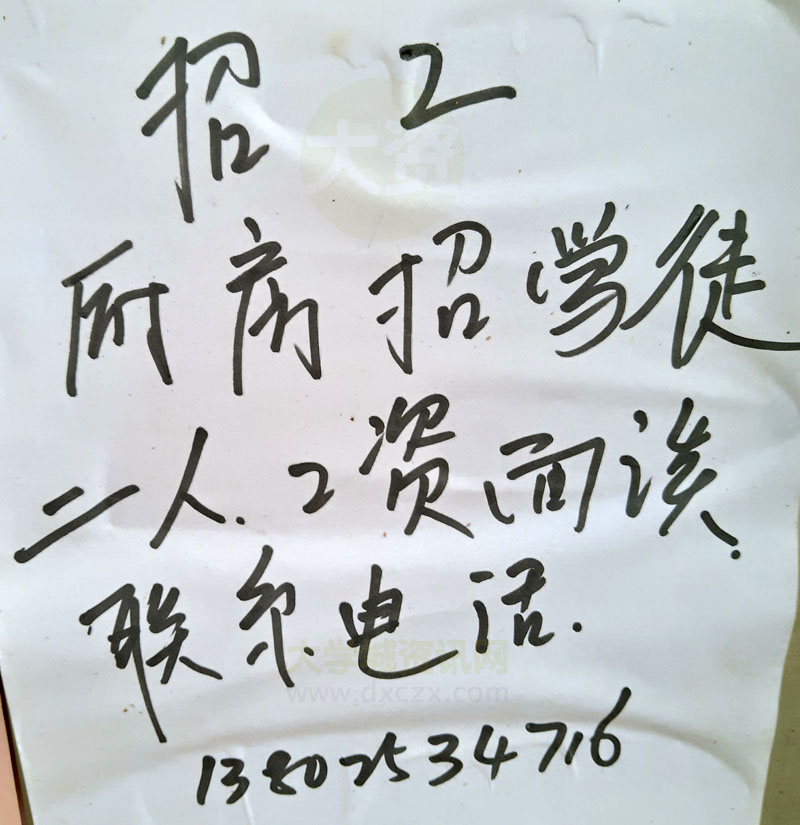 招工
大资
厨房招学徒
二人.工资面谈.
联系电话.
大学城资讯网
www.dxczx.com
13802534716